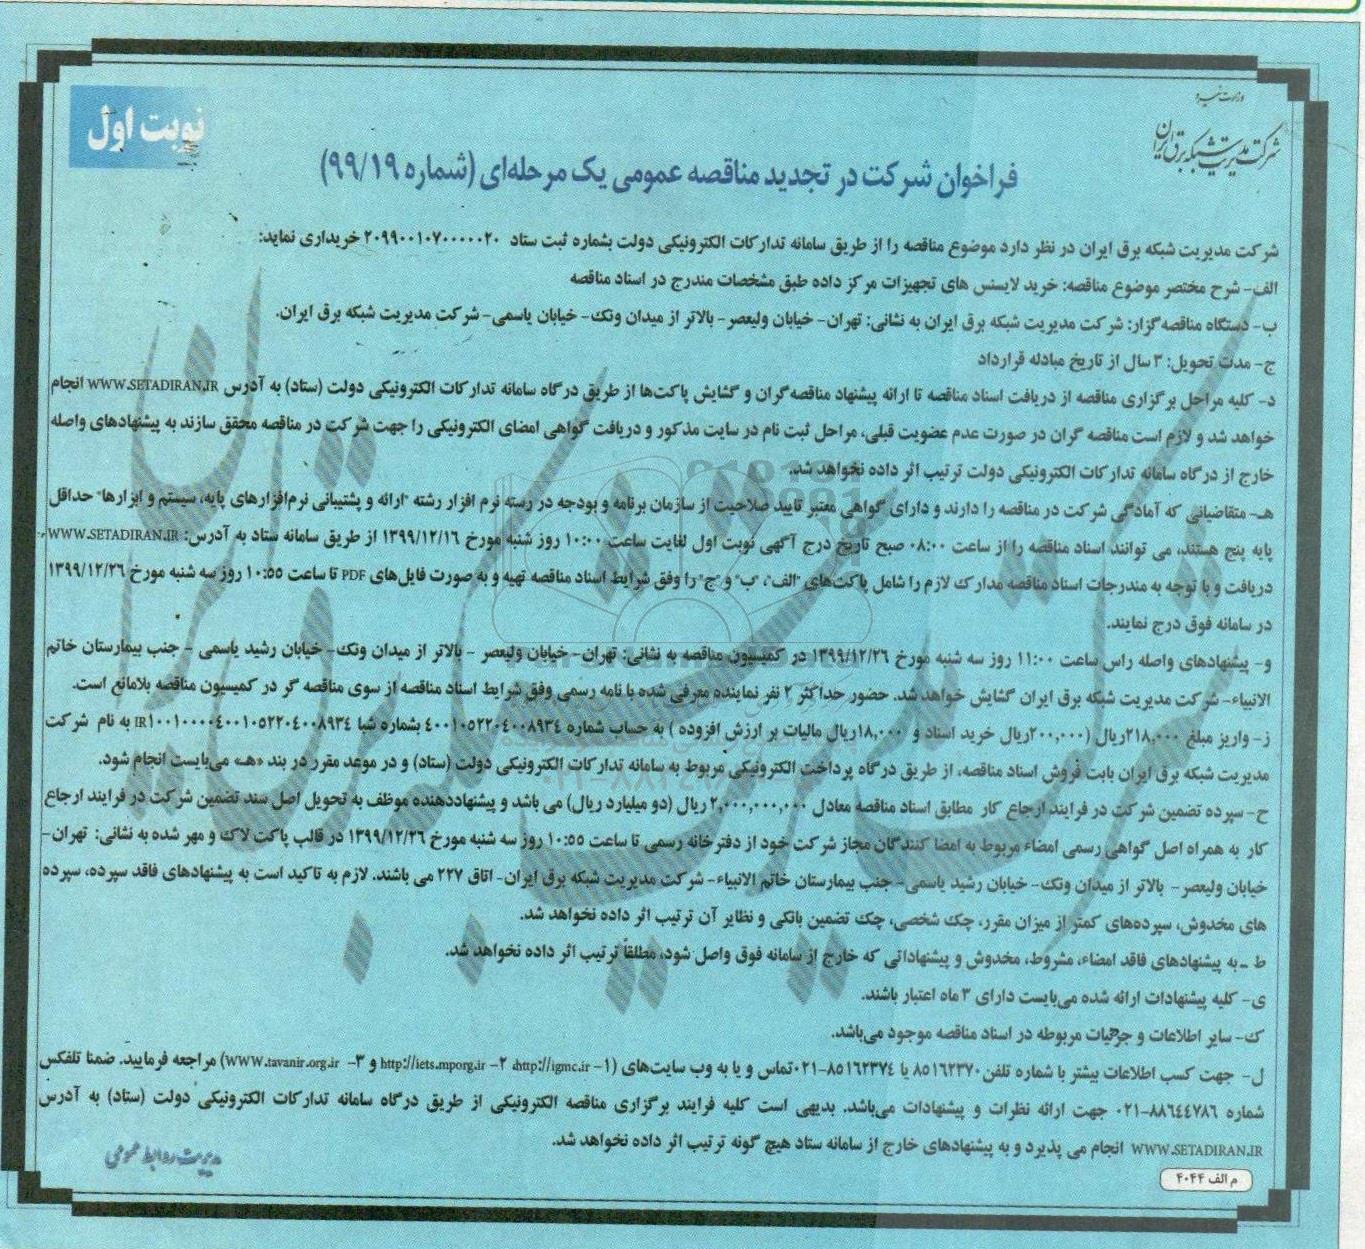 وزارت نیرو
شرکت مدیریت شبکه برق ایران
نوبت اول
فراخوان شرکت در تجدید مناقصه عمومی یک مرحله‌ای (شماره ۹۹/۱۹)
شرکت مدیریت شبکه برق ایران در نظر دارد موضوع مناقصه را از طریق سامانه تدارکات الکترونیکی دولت بشماره ثبت ستاد ۲۰۹۹۰۰۱۰۷۰۰۰۰۰۲۰ خریداری نماید:
الف- شرح مختصر موضوع مناقصه: خرید لایسنس های تجهیزات مرکز داده طبق مشخصات مندرج در اسناد مناقصه
ب- دستگاه مناقصه‌گزار: شرکت مدیریت شبکه برق ایران به نشانی: تهران- خیابان ولیعصر- بالاتر از میدان ونک- خیابان یاسمی- شرکت مدیریت شبکه برق ایران.
ج- مدت تحویل: ۳ سال از تاریخ مبادله قرارداد
د- کلیه مراحل برگزاری مناقصه از دریافت اسناد مناقصه تا ارائه پیشنهاد مناقصه‌گران و گشایش پاکت‌ها از طریق درگاه سامانه تدارکات الکترونیکی دولت (ستاد) به آدرس WWW.SETADIRAN.IR انجام
خواهد شد و لازم است مناقصه گران در صورت عدم عضویت قبلی، مراحل ثبت نام در سایت مذکور و دریافت گواهی امضای الکترونیکی را جهت شرکت در مناقصه محقق سازند به پیشنهادهای واصله
خارج از درگاه سامانه تدارکات الکترونیکی دولت ترتیب اثر داده نخواهد شد.
هـ- متقاضیانی که آمادگی شرکت در مناقصه را دارند و دارای گواهی معتبر تایید صلاحیت از سازمان برنامه و بودجه در رسته نرم افزار رشته "ارائه و پشتیبانی نرم‌افزارهای پایه، سیستم و ابزارها" حداقل
پایه پنج هستند، می توانند اسناد مناقصه را از ساعت ۰۸:۰۰ صبح تاریخ درج آگهی نوبت اول لغایت ساعت ۱۰:۰۰ روز شنبه مورخ ۱۳۹۹/۱۲/۱۶ از طریق سامانه ستاد به آدرس: WWW.SETADIRAN.IR
دریافت و با توجه به مندرجات اسناد مناقصه مدارک لازم را شامل پاکت‌های "الف"، "ب" و "ج" را وفق شرایط اسناد مناقصه تهیه و به صورت فایل‌های PDF تا ساعت ۱۰:۵۵ روز سه شنبه مورخ ۱۳۹۹/۱۲/۲۶
در سامانه فوق درج نمایند.
و- پیشنهادهای واصله راس ساعت ۱۱:۰۰ روز سه شنبه مورخ ۱۳۹۹/۱۲/۲۶ در کمیسیون مناقصه به نشانی: تهران- خیابان ولیعصر - بالاتر از میدان ونک- خیابان رشید یاسمی - جنب بیمارستان خاتم
الانبیاء- شرکت مدیریت شبکه برق ایران گشایش خواهد شد. حضور حداکثر ۲ نفر نماینده معرفی شده با نامه رسمی وفق شرایط اسناد مناقصه از سوی مناقصه گر در کمیسیون مناقصه بلامانع است.
ز- واریز مبلغ ۲۱۸,۰۰۰ریال (۲۰۰,۰۰۰ریال خرید اسناد و ۱۸,۰۰۰ریال مالیات بر ارزش افزوده ) به حساب شماره ۴۰۰۱۰۵۲۲۰۴۰۰۸۹۳۴ بشماره شبا IR۱۰۰۱۰۰۰۰۴۰۰۱۰۵۲۲۰۴۰۰۸۹۳۴ به نام شرکت
مدیریت شبکه برق ایران بابت فروش اسناد مناقصه، از طریق درگاه پرداخت الکترونیکی مربوط به سامانه تدارکات الکترونیکی دولت (ستاد) و در موعد مقرر در بند «هـ» می‌بایست انجام شود.
ح- سپرده تضمین شرکت در فرایند ارجاع کار مطابق اسناد مناقصه معادل ۲,۰۰۰,۰۰۰,۰۰۰ ریال (دو میلیارد ریال) می باشد و پیشنهاددهنده موظف به تحویل اصل سند تضمین شرکت در فرایند ارجاع
کار به همراه اصل گواهی رسمی امضاء مربوط به امضا کنندگان مجاز شرکت خود از دفترخانه رسمی تا ساعت ۱۰:۵۵ روز سه شنبه مورخ ۱۳۹۹/۱۲/۲۶ در قالب پاکت لاک و مهر شده به نشانی: تهران-
خیابان ولیعصر- بالاتر از میدان ونک- خیابان رشید یاسمی- جنب بیمارستان خاتم الانبیاء- شرکت مدیریت شبکه برق ایران- اتاق ۲۲۷ می باشند. لازم به تاکید است به پیشنهادهای فاقد سپرده، سپرده
های مخدوش، سپرده‌های کمتر از میزان مقرر، چک شخصی، چک تضمین بانکی و نظایر آن ترتیب اثر داده نخواهد شد.
ط - به پیشنهادهای فاقد امضاء، مشروط، مخدوش و پیشنهاداتی که خارج از سامانه فوق واصل شود، مطلقاً ترتیب اثر داده نخواهد شد.
ی- کلیه پیشنهادات ارائه شده می‌بایست دارای ۳ ماه اعتبار باشند.
ک- سایر اطلاعات و جزئیات مربوطه در اسناد مناقصه موجود می‌باشد.
ل- جهت کسب اطلاعات بیشتر با شماره تلفن ۸۵۱۶۲۳۷۰ یا ۸۵۱۶۲۳۷۴-۰۲۱ تماس و یا به وب سایت‌های (۱- http://igmc.ir، ۲- http://iets.mporg.ir و ۳- WWW.tavanir.org.ir) مراجعه فرمایید. ضمنا تلفکس
شماره ۸۸۶۴۴۷۸۶-۰۲۱ جهت ارائه نظرات و پیشنهادات می‌باشد. بدیهی است کلیه فرایند برگزاری مناقصه الکترونیکی از طریق درگاه سامانه تدارکات الکترونیکی دولت (ستاد) به آدرس
WWW.SETADIRAN.IR انجام می پذیرد و به پیشنهادهای خارج از سامانه ستاد هیچ گونه ترتیب اثر داده نخواهد شد.
مدیریت روابط عمومی
م الف ۴۰۴۴